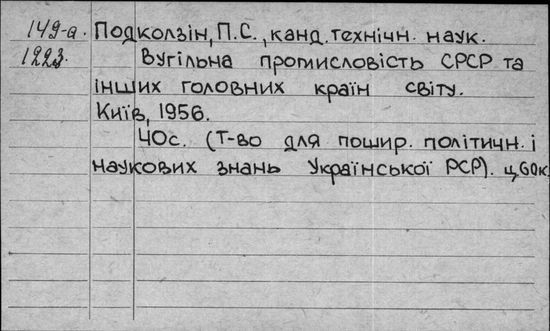 149-а. Подколзін, П.С., канд. технічн. наук.
1223. Вугільна промисловість СРСР та
інших головних країн світу.
Київ, 1956.
40с. (Т-во для пошир. політичн. і
наукових знань Української РСР). ц. 60к.